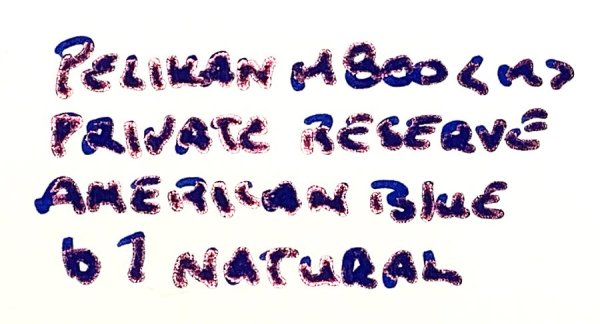 PELIKAN M800 <M>
PRIVATE RESERVE
AMERICAN BLUE
61 NATURAL